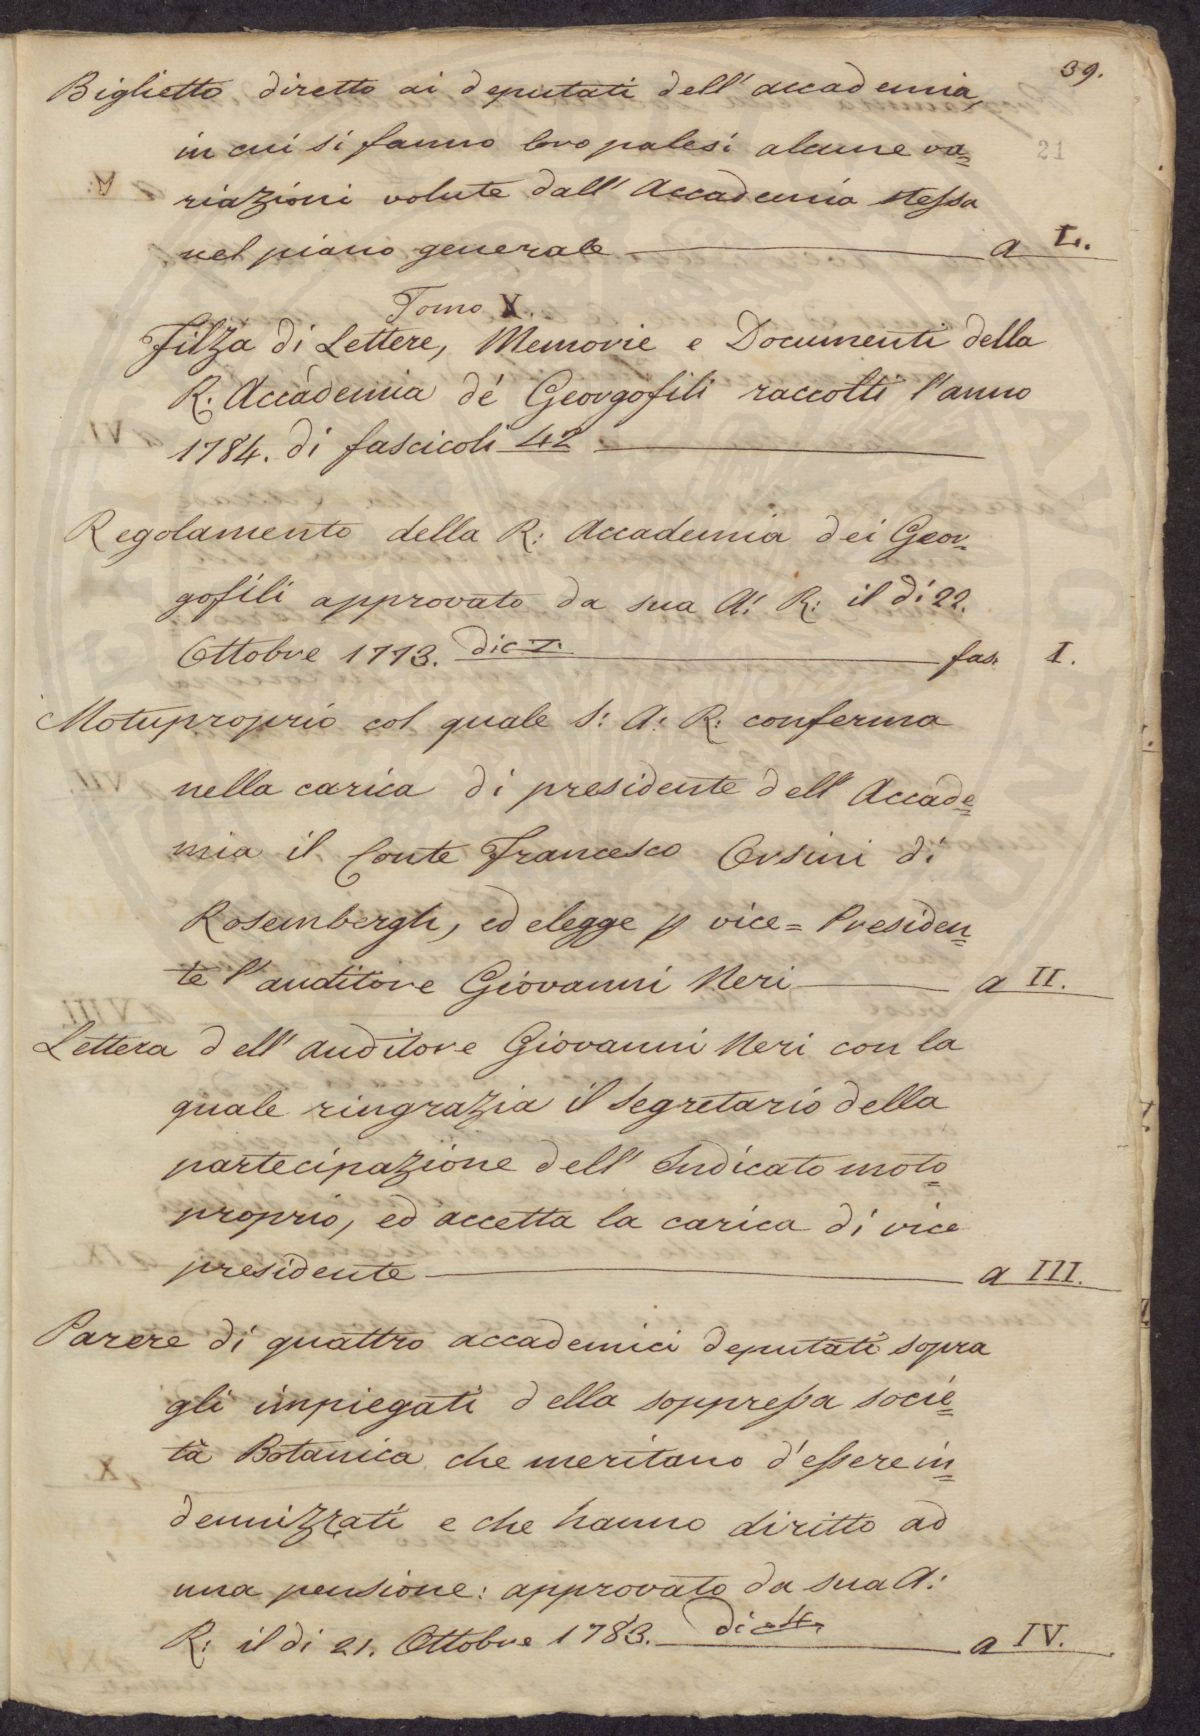 39.
21
Biglietto diretto ai deputati dell' accademia,
in cui si fanno loro palesi alcune va=
riazioni volute dall' Accademia stessa
nel piano generale a L.
Tomo X.
Filza di Lettere, Memorie e Documenti della
R. Accademia de' Georgofili raccolti l'anno
1784. di fascicoli 42
Regolamento della R: Accademia dei Geor=
gofili approvato da sua A: R: il di 22.
Ottobre 1773. fas. I.
Motuproprio col quale S: A: R: conferma
nella carica di presidente dell' Accade=
mia il Conte Francesco Orsini di
Rosembergh, ed elegge p vice= Presiden=
te l'auditore Giovanni Neri a II.
Lettera dell' auditore Giovanni Neri con la
quale ringrazia il Segretario della
partecipazione dell' Indicato moto=
proprio, ed accetta la carica di vice
presidente a III.
Parere di quattro accademici deputati sopra
gli impiegati della soppressa socie=
tà Botanica che meritano d'essere in=
dennizzati e che hanno diritto ad
una pensione: approvato da sua A:
R: il di 21. Ottobre 1783. a IV.